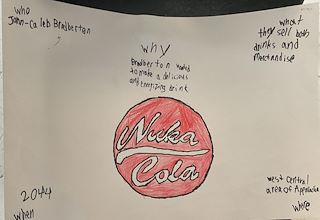 who
John-Caleb Bradbertan
why
Bradberton wanted
to make a delicious
and energizing drink
what
they sell both
drinks and
merchandise
Nuka
Cola
2044
when
west central
area of Appalachia
where